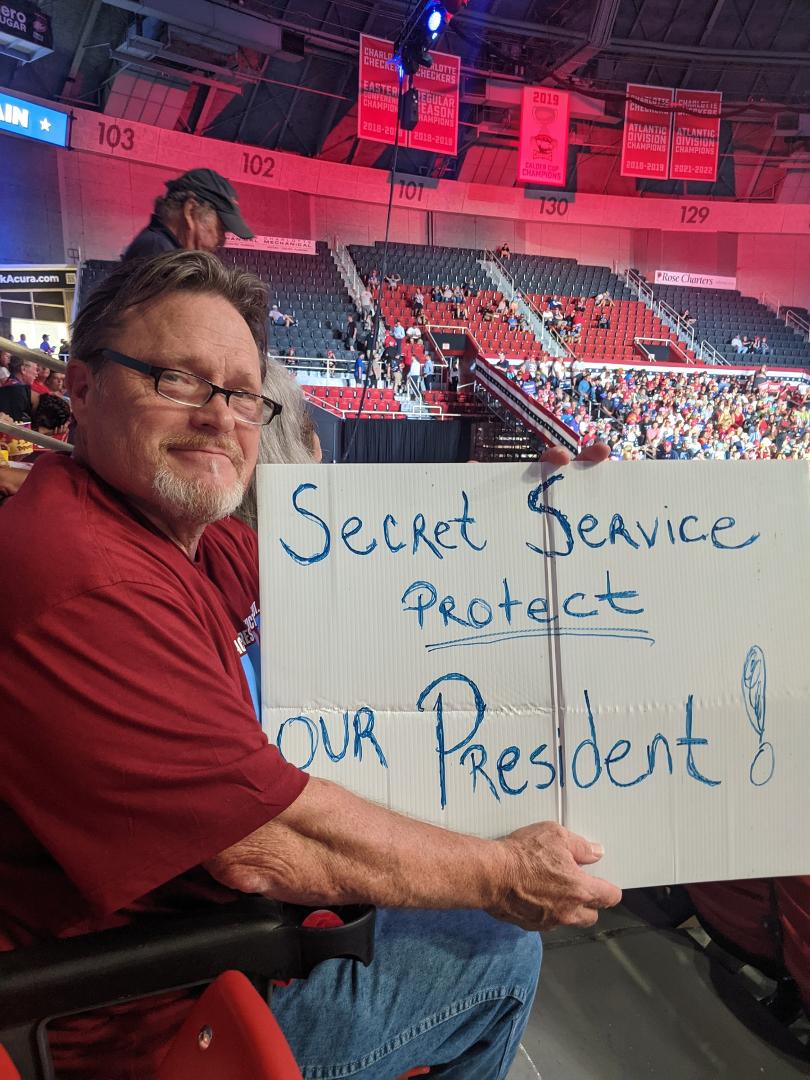 AIN ★
103
102
101
130
129
CHARLOTTE
CHECKERS
EASTERN
CONFERENCE
CHAMPIONS
2018-2019
CHARLOTTE
CHECKERS
REGULAR
SEASON
CHAMPIONS
2018-2019
2019
CALDER CUP
CHAMPIONS
CHARLOTTE
CHECKERS
ATLANTIC
DIVISION
CHAMPIONS
2018-2019
CHARLOTTE
CHECKERS
ATLANTIC
DIVISION
CHAMPIONS
2021-2022
MECHANICAL
Rose Charters
kAcura.com
Secret Service
Protect
OUR President!